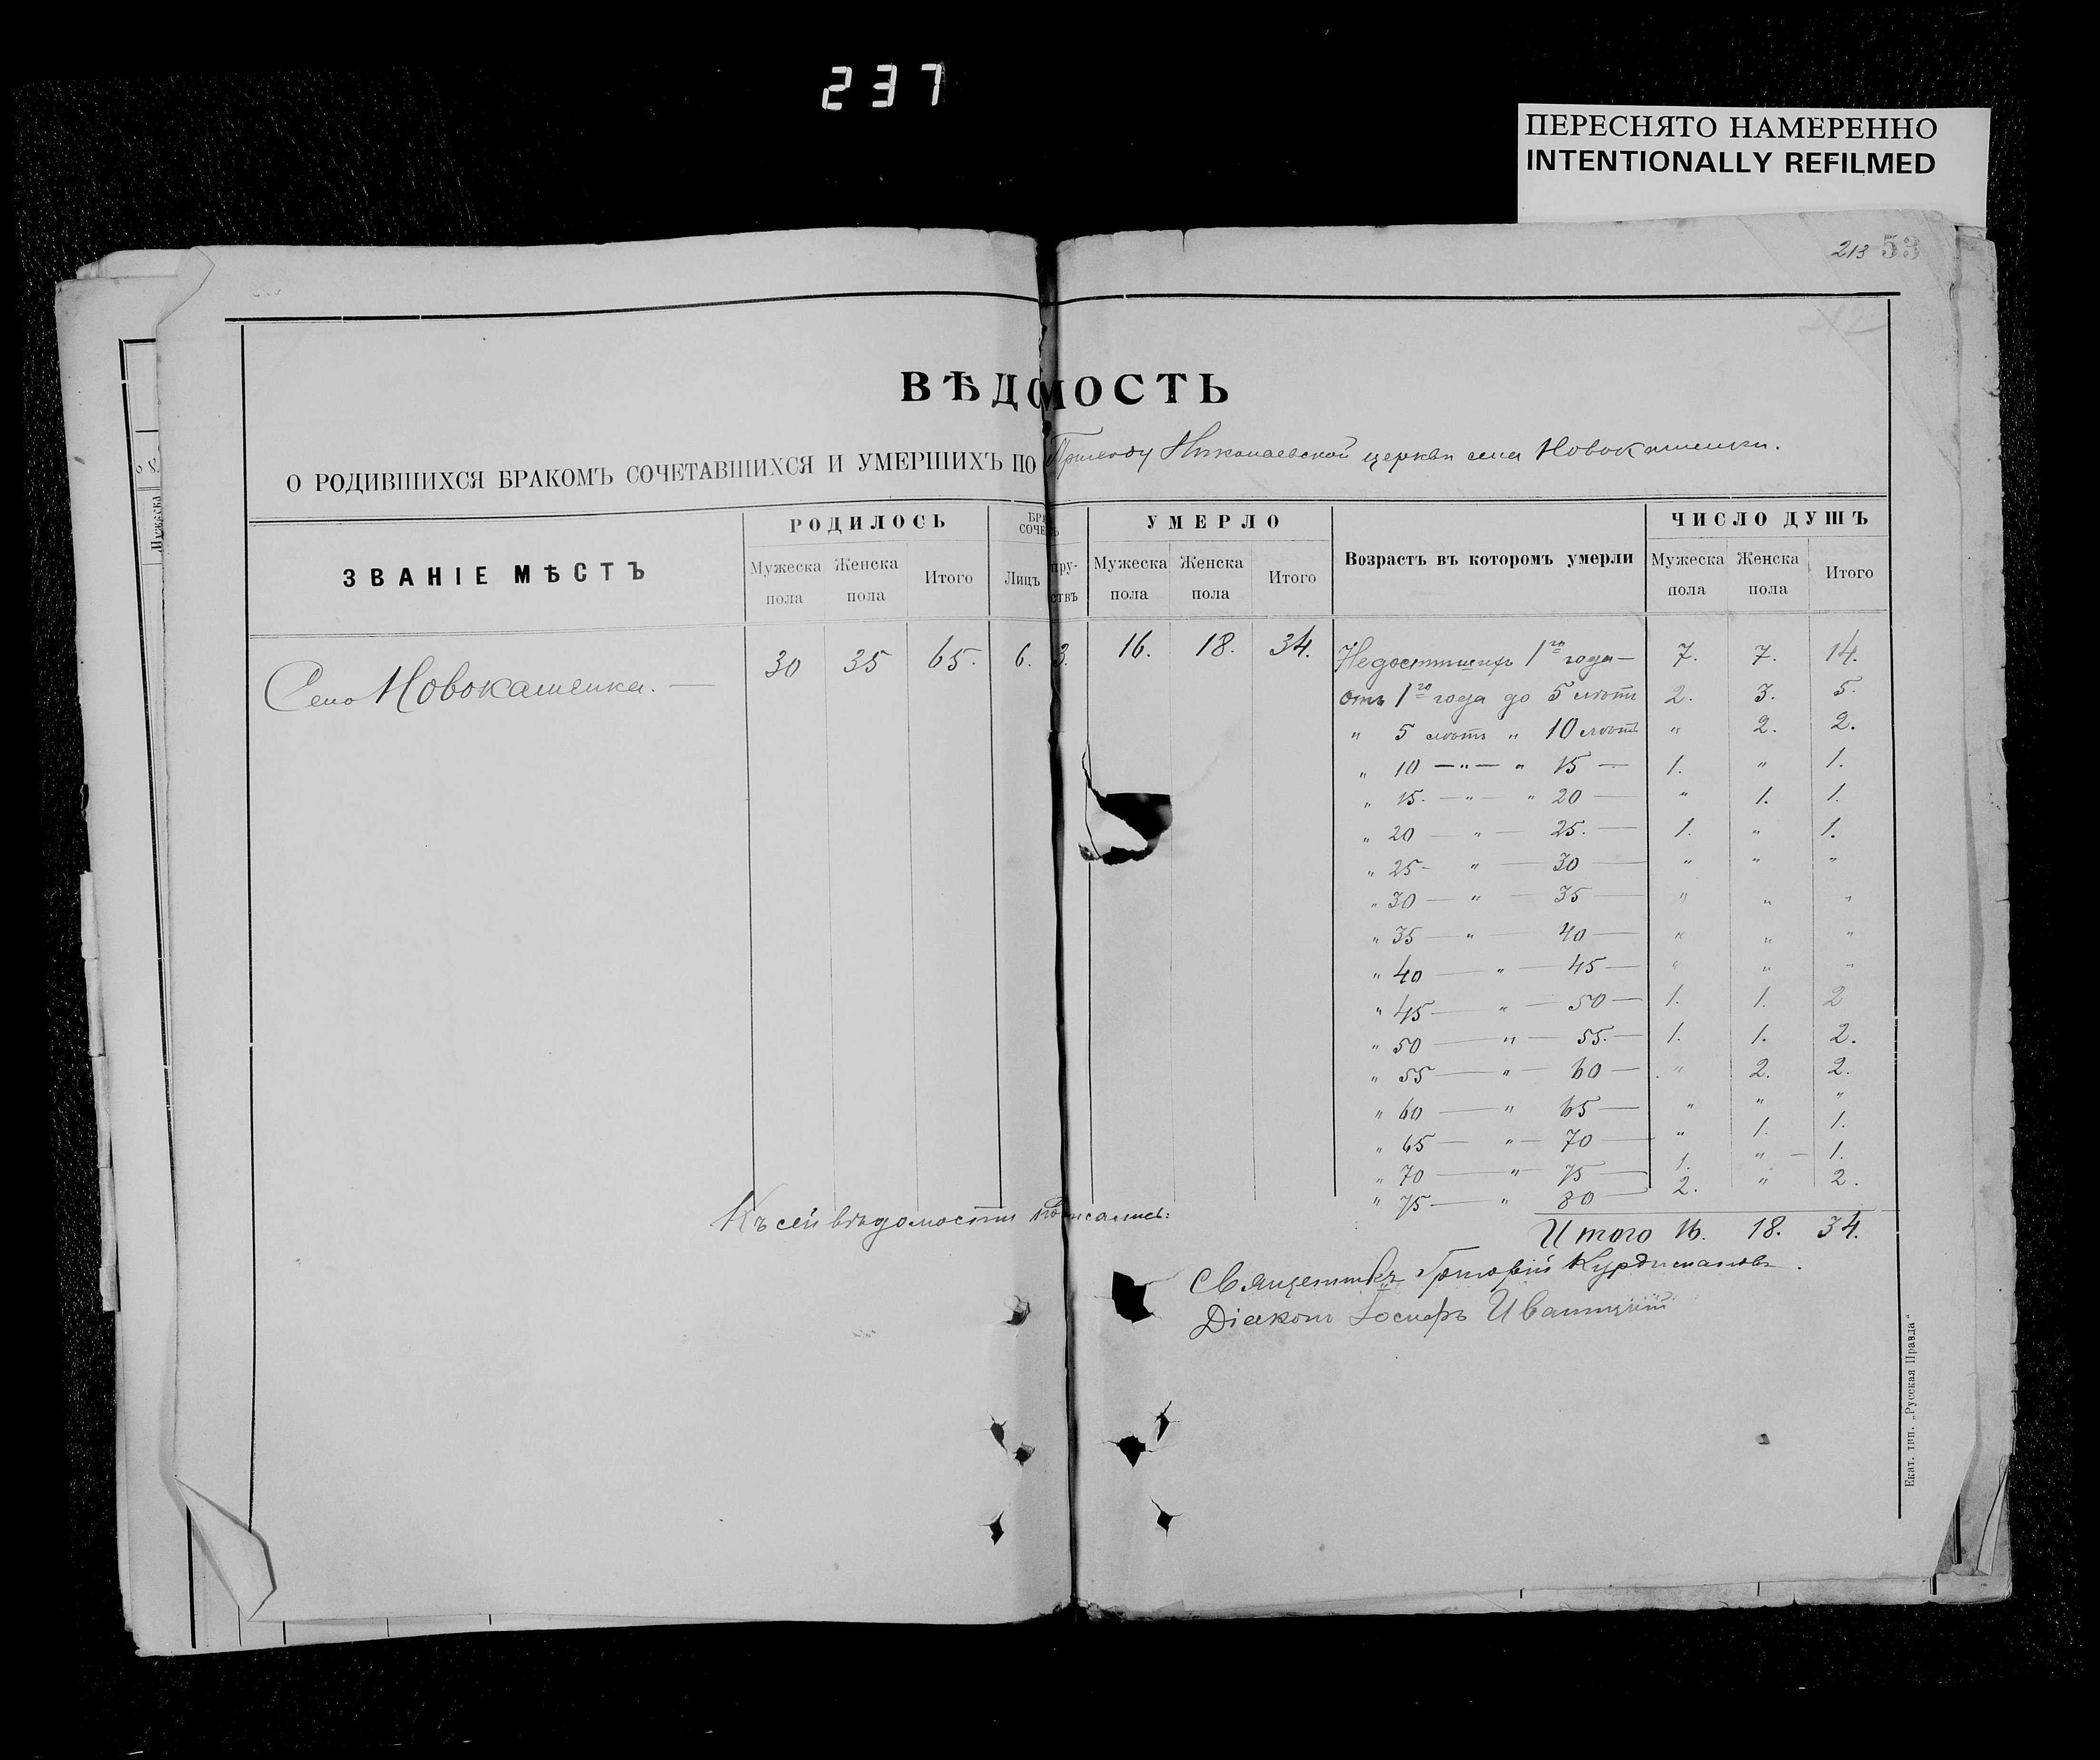 237
ПЕРЕСНЯТО НАМЕРЕННО
INTENTIONALLY REFILMED
213 53
212
ВѢДОМОСТЬ
О РОДИВШИХСЯ БРАКОМЪ СОЧЕТАВШИХСЯ И УМЕРШИХЪ ПО Приходу Николаевской церкви села Новокаменки.
ЗВАНІЕ МѢСТЪ РОДИЛОСЬ БРА СОЧЕ Ъ УМЕРЛО Возрастъ въ которомъ умерли ЧИСЛО ДУШЪ
Мужеска пола Женска пола Итого Лицъ пру-ствъ Мужеска пола Женска пола Итого Мужеска пола Женска пола Итого
Село Новокаменка. — 30 35 65. 6. 3. 16. 18. 34. Недостигших 1го года — 7. 7. 14.
отъ 1го года до 5 лѣтъ 2. 3. 5.
" 5 лѣтъ " 10 лѣтъ " 2. 2.
" 10 — " — " 15 — 1. " 1.
" 15. — " — " 20 — " 1. 1.
" 20 — " — 25. — 1. " 1.
" 25 - " — 30 — " " "
" 30 — " — 35 — " " "
" 35 — " — 40 — " " "
" 40 — " — 45 — " " "
" 45 — " — 50 — 1. 1. 2
" 50 — " — 55. — 1. 1. 2.
" 55 — " — 60 — " 2. 2.
" 60 — " 65 — " " "
" 65 — " — 70 — " 1. 1.
" 70 — " — 75 — 1. " — 1.
" 75 — " 80 — 2. " 2.
Итого 16. 18. 34.
Къ сей вѣдомости подписались:
Священникъ Григорій
Діаконъ Іосифъ Иваницкій
Екат. тип. „Русская Правда"